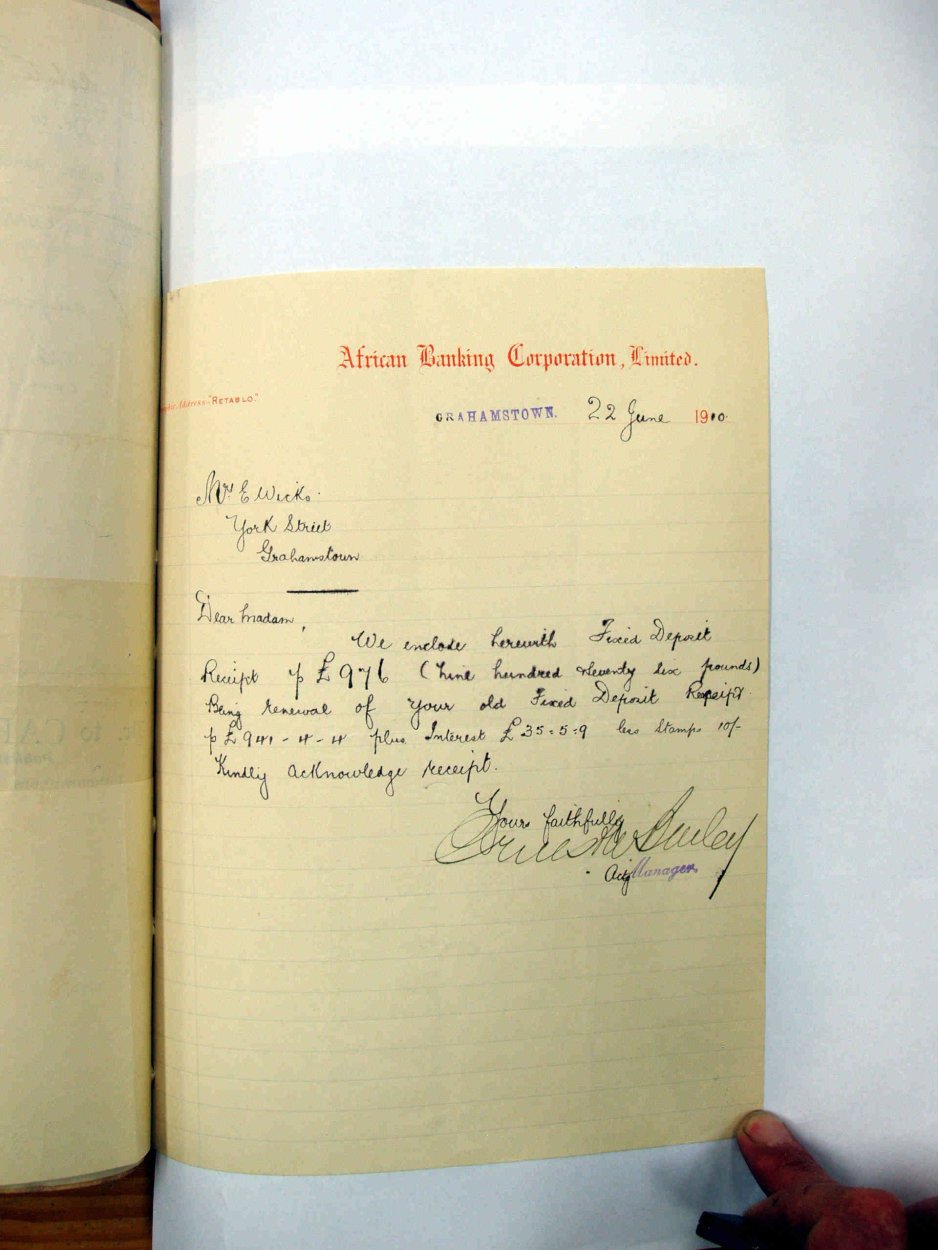 African Banking Corporation, Limited.
Address "RETABLO."
GRAHAMSTOWN. 22 June 1910
Mrs E Wicks.
York Street
Grahamstown
Dear Madam,
We enclose herewith Fixed Deposit
Receipt p £976 (nine hundred seventy six pounds)
Being renewal of your old Fixed Deposit Receipt
p £941-4-4 plus Interest £35:5:9 less Stamps 10/-
Kindly acknowledge receipt.
Yours faithfully
Actg Manager